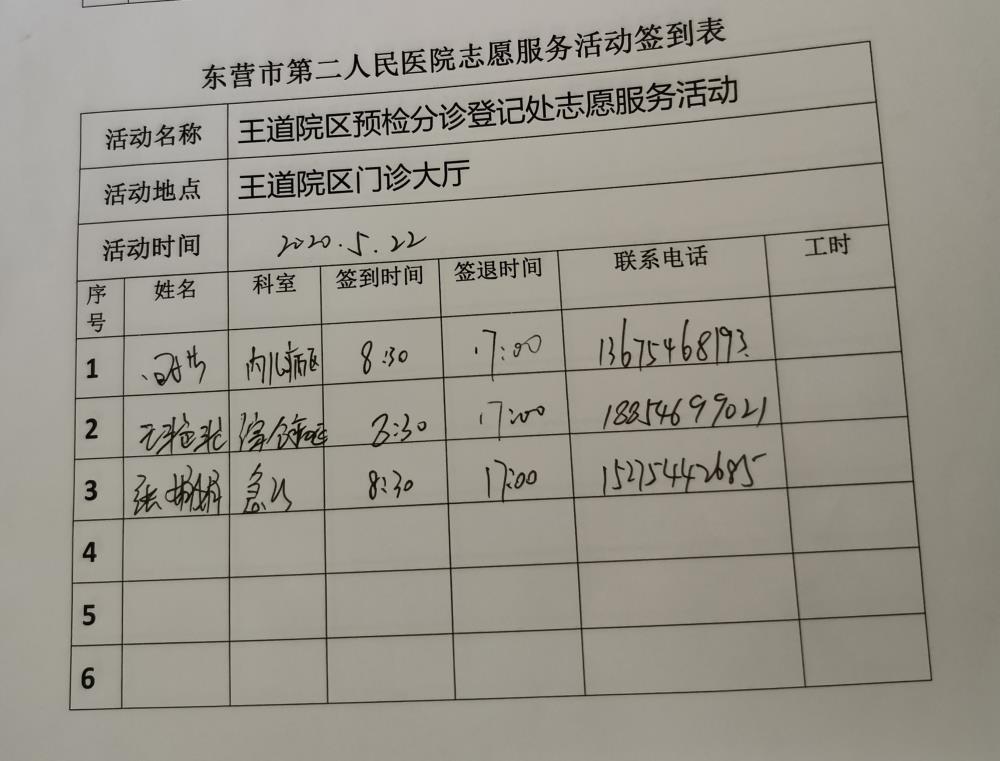 东营市第二人民医院志愿服务活动签到表
活动名称 王道院区预检分诊登记处志愿服务活动
活动地点 王道院区门诊大厅
活动时间 2020.5.22
序号 姓名 科室 签到时间 签退时间 联系电话 工时
1 内儿病区 8:30 17:00 13675468193
2 8:30 17:00 18854699021
3 张 急诊 8:30 17:00 15275442685
4
5
6